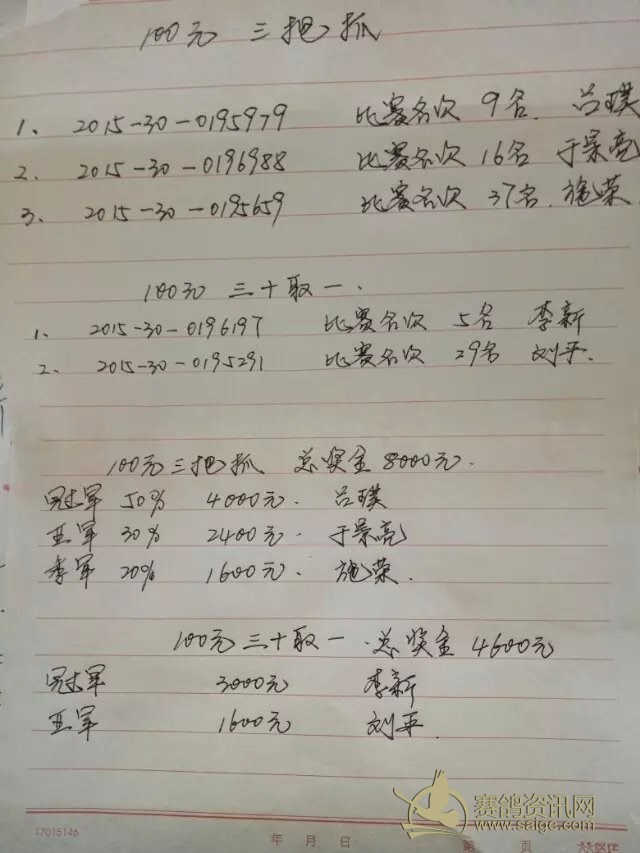 100元 三把抓
1、 2015-30-0195979 比赛名次 9名. 吕璞
2、 2015-30-0196988 比赛名次 16名 于景亮
3、 2015-30-0195659 比赛名次 37名. 施荣.
100元 三十取一.
1、 2015-30-0196197 比赛名次 5名 李新
2、 2015-30-0195291 比赛名次 29名 刘平.
100元三把抓 总奖金8000元.
冠军 50% 4000元. 吕璞
亚军 30% 2400元. 于景亮
季军 20% 1600元. 施荣.
100元三十取一.总奖金4600元
冠军 3000元 李新
亚军 1600元 刘平.
赛鸽资讯网
www.saige.com
17015146 年 月 日 第 页